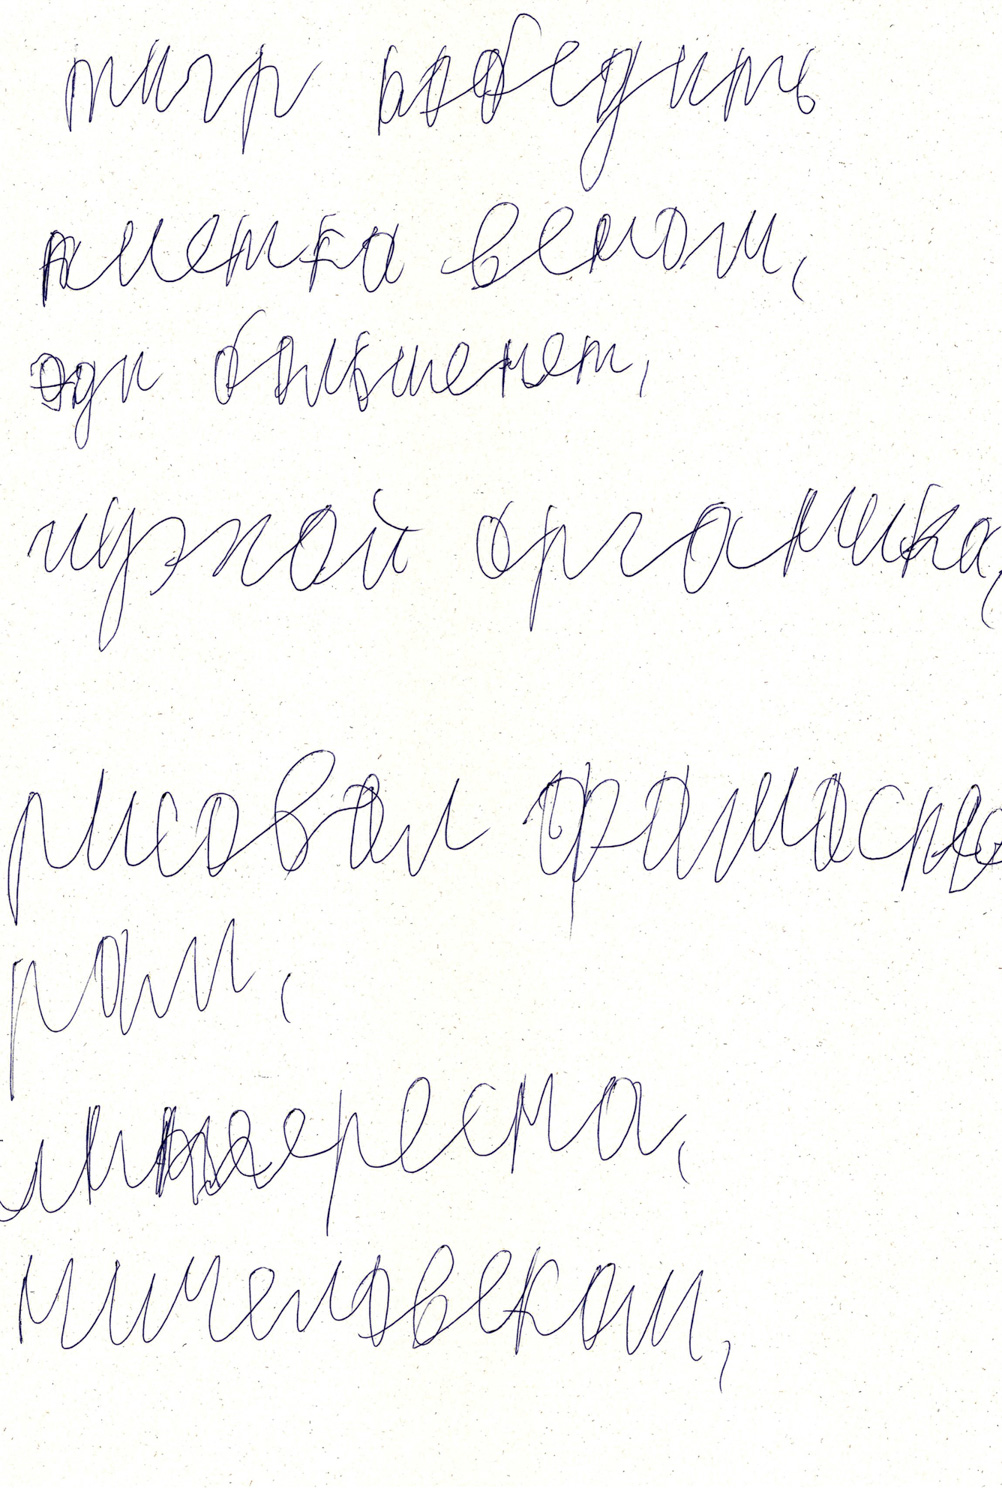 тигр победить
клетка велом,
эди большенет,
чузкой органика,
рисовал фрамоспе
рам,
интересна,
ничеловеком,